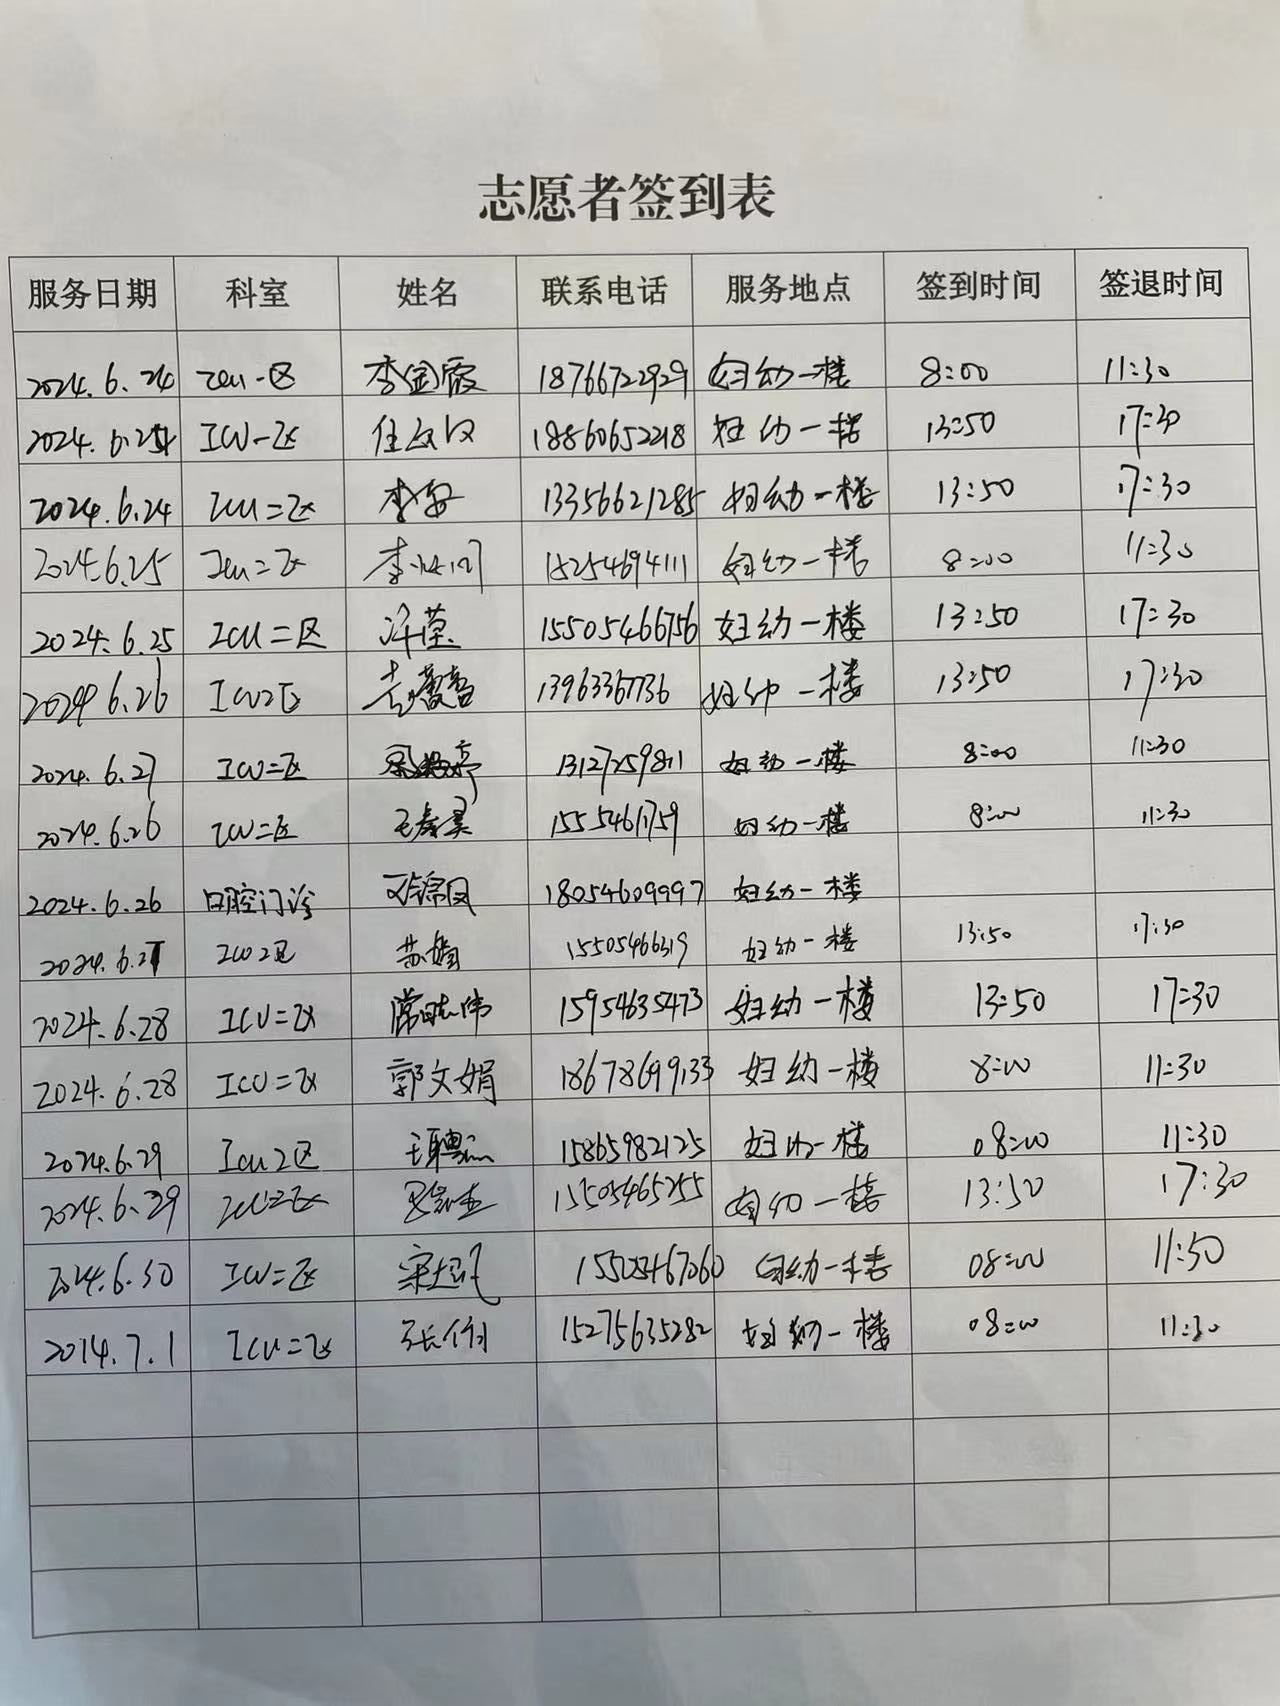 志愿者签到表
服务日期 科室 姓名 联系电话 服务地点 签到时间 签退时间
2024.6.24 ICU一区 李金霞 18766722929 妇幼一楼 8:00 11:30
2024.6.24 ICU一区 18860652218 妇幼一楼 13:50 17:30
2024.6.24 ICU二区 李安 13356621285 妇幼一楼 13:50 17:30
2024.6.25 ICU二区 李 15254694111 妇幼一楼 8:00 11:30
2024.6.25 ICU二区 许莹 15505466756 妇幼一楼 13:50 17:30
2024 6.26 ICU2区 13963367736 妇幼一楼 13:50 17:30
2024.6.27 ICU二区 13127259811 妇幼一楼 8:00 11:30
2024.6.26 ICU二区 15554611759 妇幼一楼 8:00 11:30
2024.6.26 口腔门诊 18054609997 妇幼一楼
2024.6.27 ICU2区 苏娟 15505466319 妇幼一楼 13:50 17:30
2024.6.28 ICU二区 常晓伟 15954635473 妇幼一楼 13:50 17:30
2024.6.28 ICU二区 郭文娟 18678699133 妇幼一楼 8:00 11:30
2024.6.29 ICU2区 15865982125 妇幼一楼 08:00 11:30
2024.6.29 ICU二区 15505465255 妇幼一楼 13:50 17:30
2024.6.30 ICU二区 15505467060 妇幼一楼 08:00 11:30
2014.7.1 ICU二区 15275635282 妇幼一楼 08:00 11:30